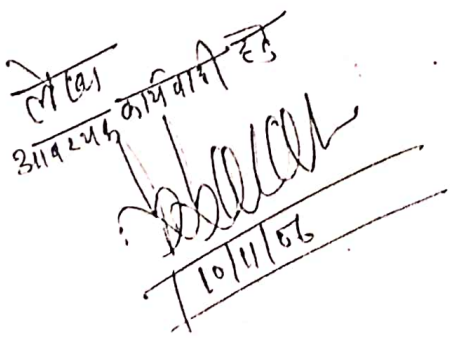 लेखा
आवश्यक कार्यवाही हेतु
10/11/06